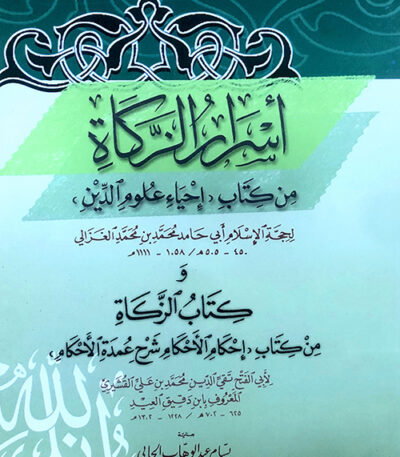 أسرار الزكاة
من كتاب «إحياء علوم الدين»
لحجة الإسلام أبي حامد محمد بن محمد الغزالي
٤٥٠ - ٥٠٥هـ / ١٠٥٨ - ١١١١م
و
كتاب الزكاة
من كتاب «إحكام الأحكام شرح عمدة الأحكام»
لأبي الفتح تقي الدين محمد بن علي القشيري
المعروف بابن دقيق العيد
٦٢٥ - ٧٠٢هـ / ١٢٢٨ - ١٣٠٢م
بسام عبد الوهاب الجابي